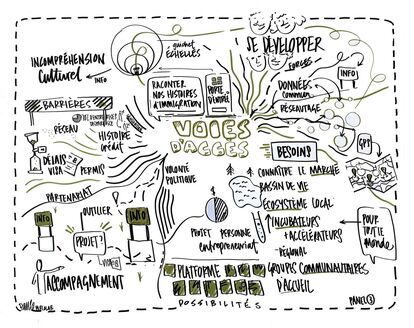 INCOMPRÉHENSION
Culturel
INFO
guichet
ÉCHELLES
RACONTER
NOS HISTOIRES
D'IMMIGRATION
PORTE
D'ENTRÉE
SE DÉVELOPPER
FORCES
DONNÉES
Communes
INFO
RÉSEAUTAGE
GPS
BARRIÈRES
RÉSEAU
HISTOIRE
CRÉDIT
DÉLAIS
VISA
PERMIS
PARTENARIAT
VOIES
D'ACCÈS
VOLONTÉ
POLITIQUE
BESOINS
CONNAÎTRE LE MARCHÉ
BASSIN DE VIE
ÉCOSYSTÈME LOCAL
INCUBATEURS
+ ACCÉLÉRATEURS
RÉGIONAL
POUR
TOUT LE
MONDE
INFO
OUTILLER
INFO
PROJET?
VISA
ACCOMPAGNEMENT
PROJET PERSONNE
entrepreneuriat
PLATEFORME
GROUPES COMMUNAUTAIRES
D'ACCUEIL
POSSIBILITÉS
PANEL